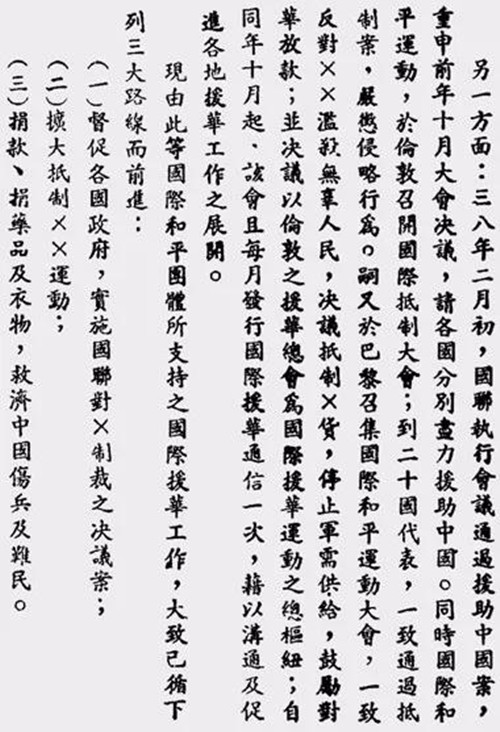 另一方面：三八年二月初，國聯執行會議通過援助中國案，
重申前年十月大會決議，請各國分別盡力援助中國。同時國際和
平運動，於倫敦召開國際抵制大會；到二十國代表，一致通過抵
制案，嚴懲侵略行爲。嗣又於巴黎召集國際和平運動大會，一致
反對××濫殺無辜人民，決議抵制×貨，停止軍需供給，鼓勵對
華放款；並決議以倫敦之援華總會爲國際援華運動之總樞紐；自
同年十月起、該會且每月發行國際援華通信一次，藉以溝通及促
進各地援華工作之展開。
現由此等國際和平團體所支持之國際援華工作，大致已循下
列三大路線而前進：
（一）督促各國政府，實施國聯對×制裁之決議案；
（二）擴大抵制××運動；
（三）捐款、捐藥品及衣物，救濟中國傷兵及難民。